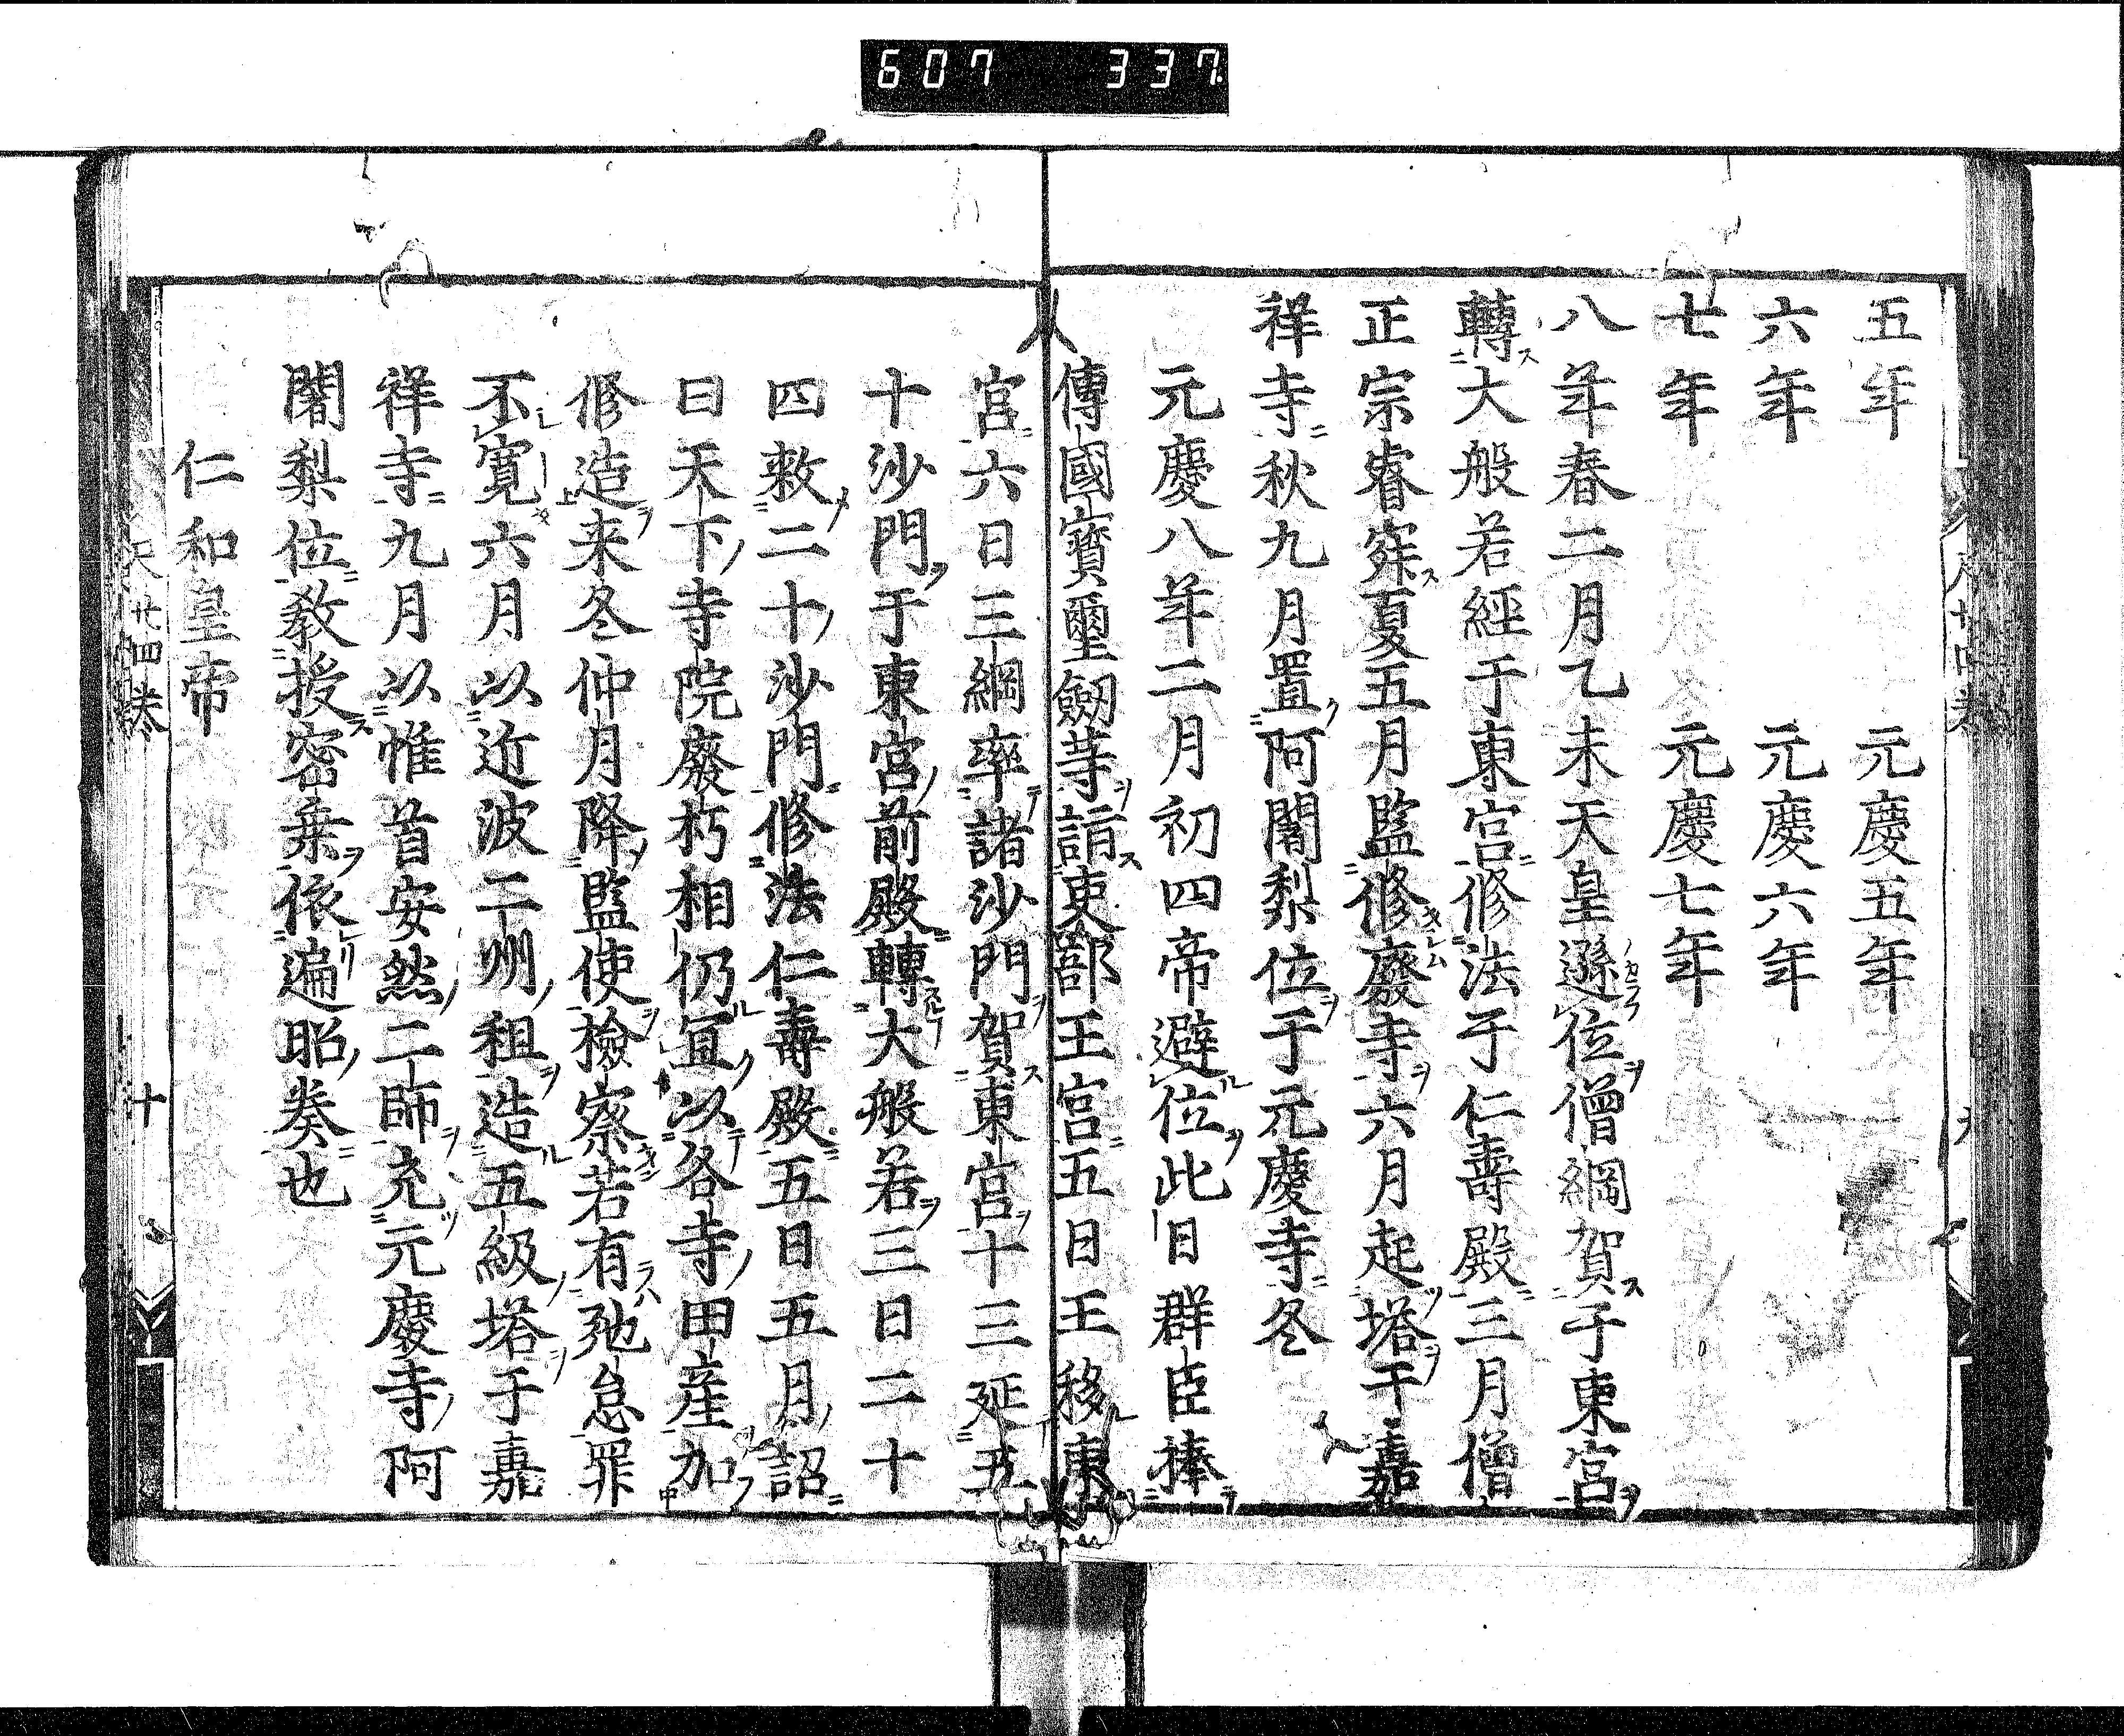 607 337
五年 元慶五年
六年 元慶六年
七年 元慶七年
八年春二月乙未天皇遜位僧綱賀于東宮
轉大般若經于東宮修法于仁壽殿三月僧
正宗睿寂夏五月監修廢寺六月起塔于嘉
祥寺秋九月置阿闍梨位于元慶寺冬
元慶八年二月初四帝避位此日群臣捧
傳國寶璽劔等詣吏部王宮五日王移東
宮六日三綱率諸沙門賀東宮十三延五
十沙門于東宮前殿轉大般若三日二十
四敕二十沙門修法仁壽殿五日五月詔
曰天下寺院廢朽相仍宜以各寺田産加
修造来冬仲月降監使檢察若有弛怠罪
不寬六月以近波二州租造五級塔于嘉
祥寺九月以惟首安然二師充元慶寺阿
闍梨位敎授密乗依遍昭奏也
仁和皇帝
廿四巻 十